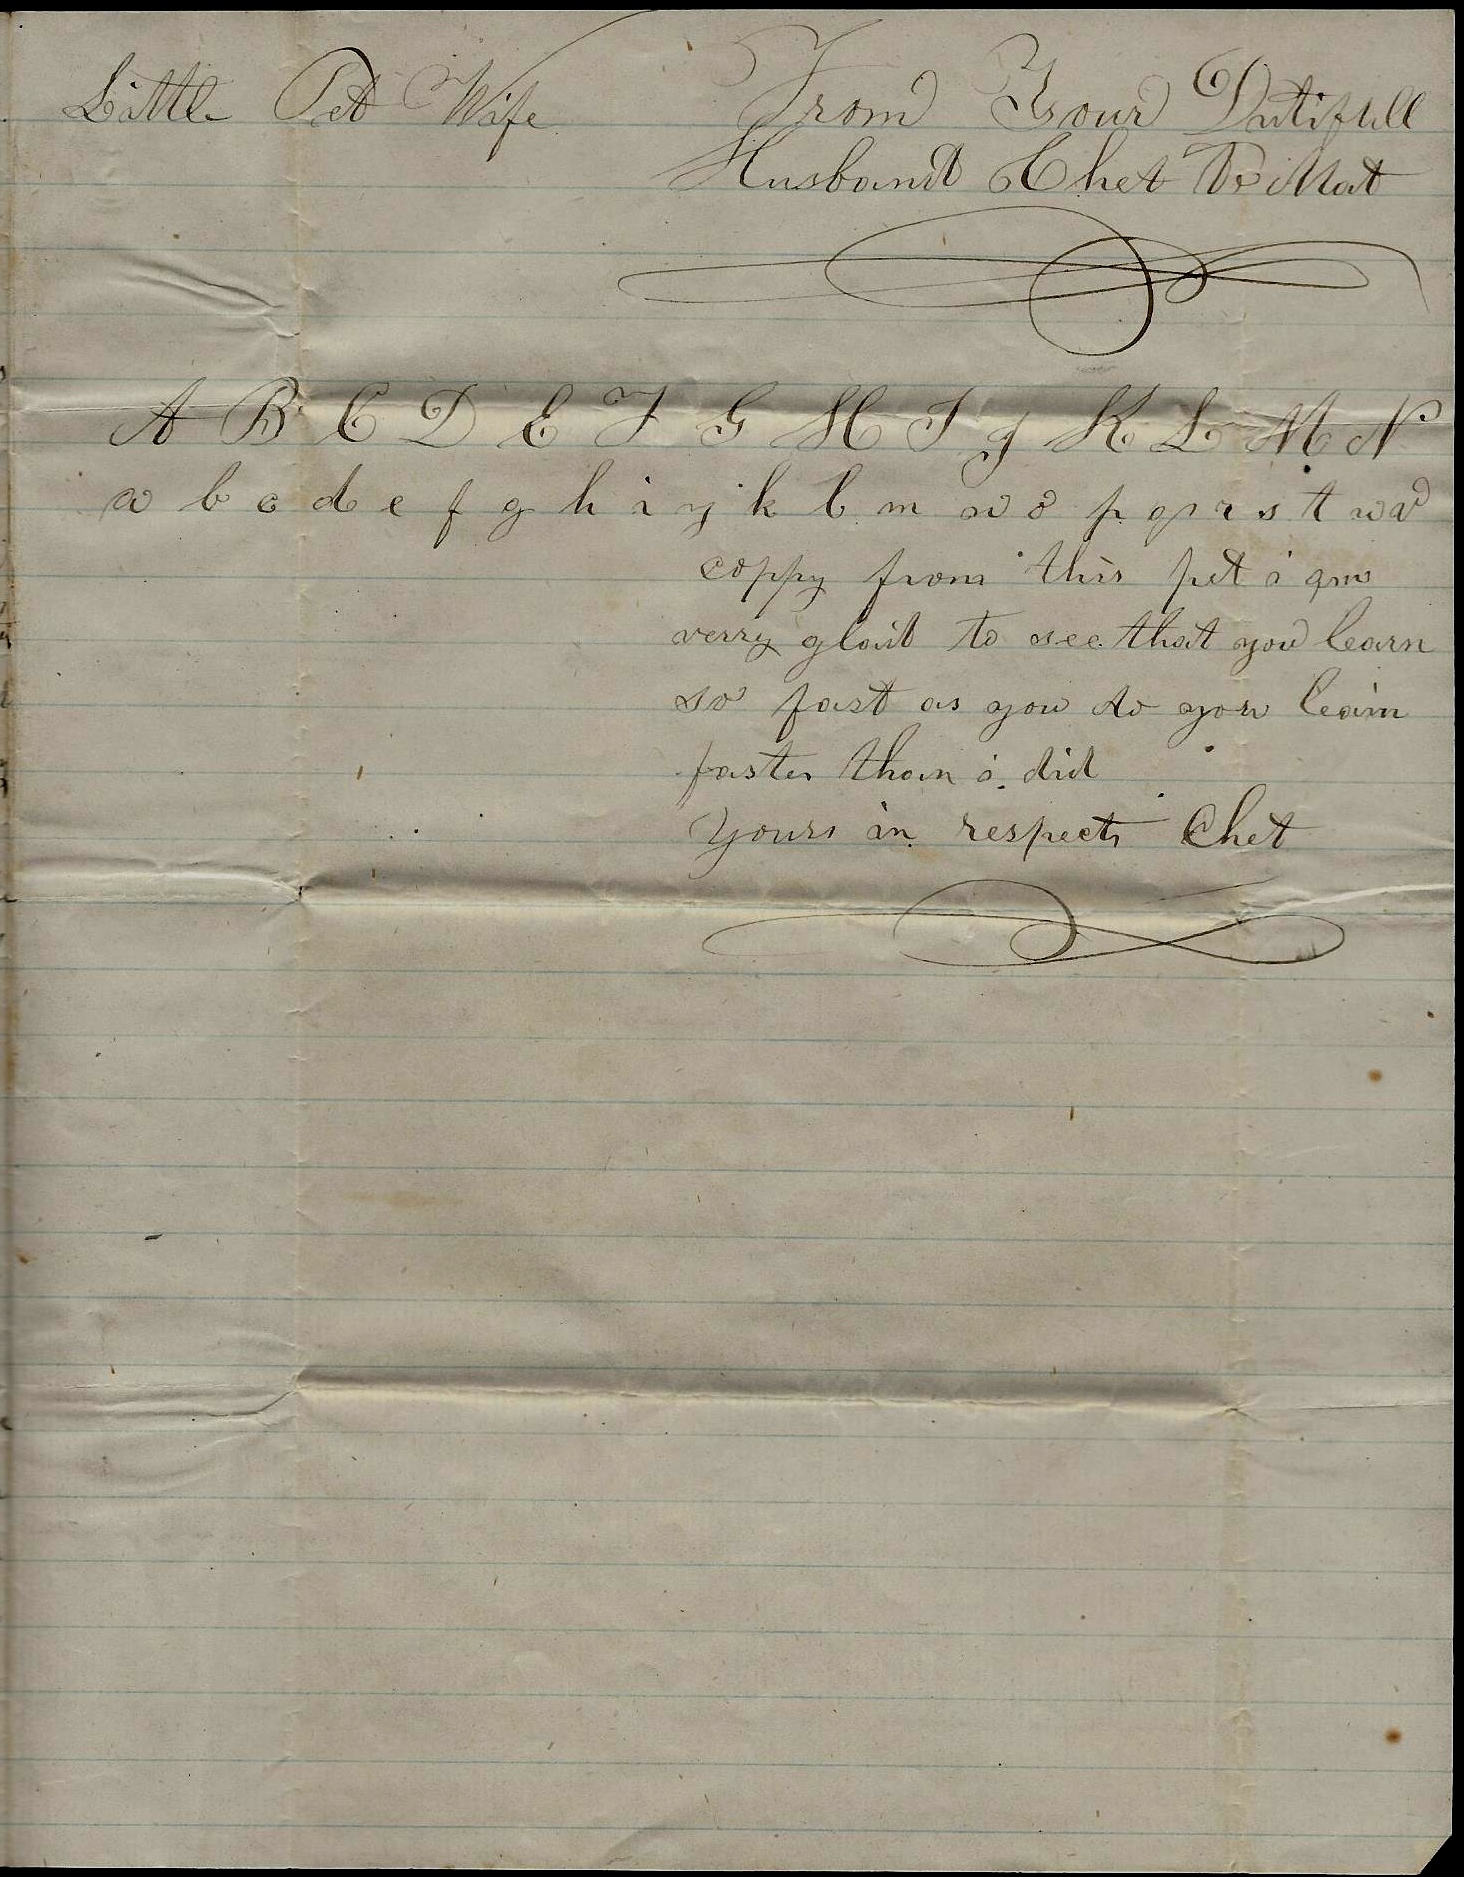 Little Pet Wife From Your Dutifull
Husband Chet
A B C D E F G H I J K L M N
a b c d e f g h i y k l m n o p q r s t u v
coppy from this pet i am
verry glad to see that you learn
so fast as you do you learn
faster than i did
yours in respects Chet